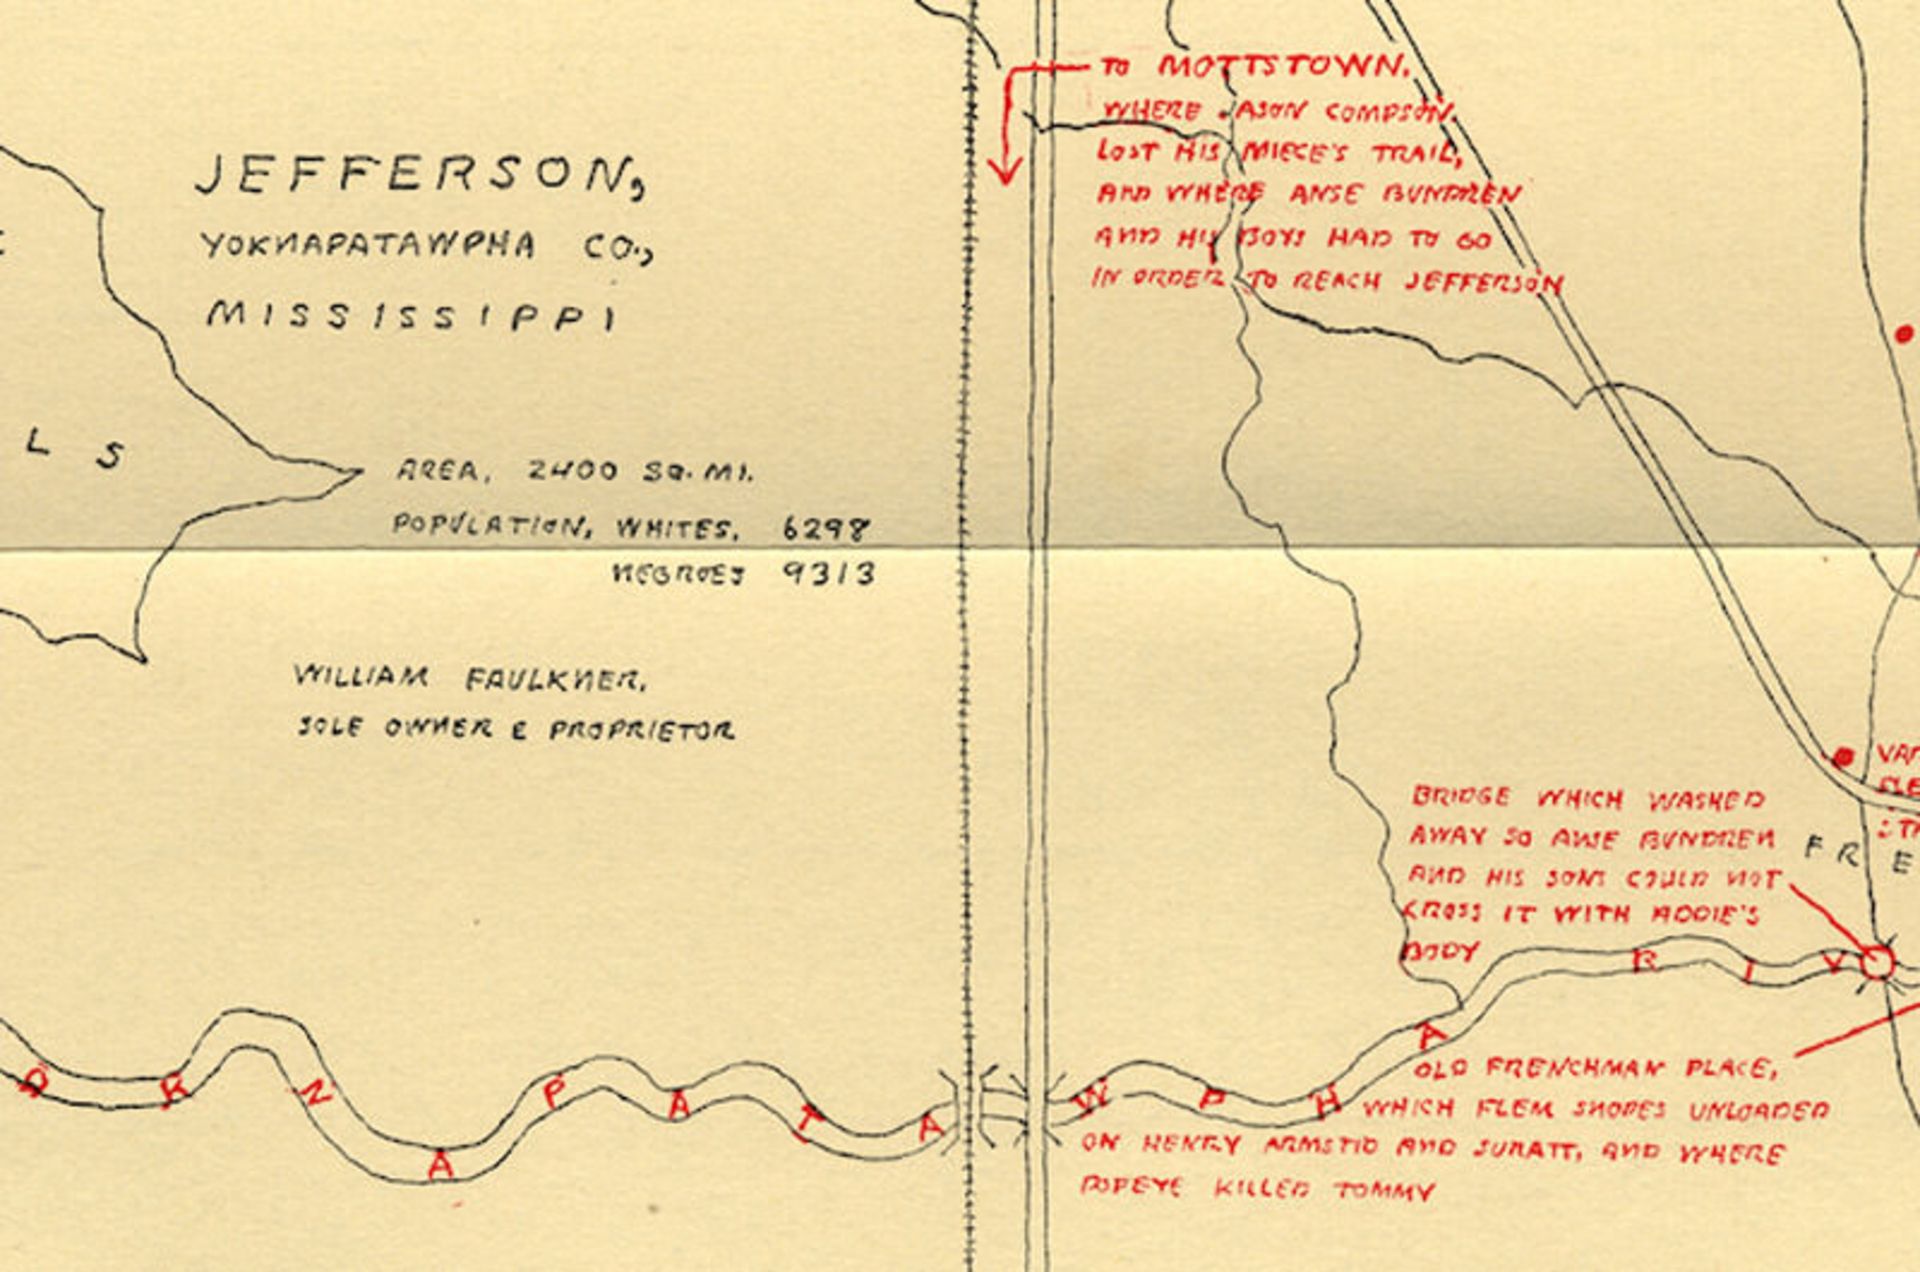 TO MOTTSTOWN.
WHERE JASON COMPSON
LOST HIS NIECE'S TRAIL,
AND WHERE ANSE BUNDREN
AND HIS BOYS HAD TO GO
IN ORDER TO REACH JEFFERSON
JEFFERSON,
YOKNAPATAWPHA CO.,
MISSISSIPPI
L S
AREA, 2400 SQ. MI.
POPULATION, WHITES, 6298
NEGROES 9313
WILLIAM FAULKNER,
SOLE OWNER & PROPRIETOR
BRIDGE WHICH WASHED
AWAY SO ANSE BUNDREN
AND HIS SONS COULD NOT
CROSS IT WITH ADDIE'S
BODY
F R E
O K N A P A T A W P H A R I V
OLD FRENCHMAN PLACE,
WHICH FLEM SNOPES UNLOADED
ON HENRY ARMSTID AND SURATT, AND WHERE
POPEYE KILLED TOMMY